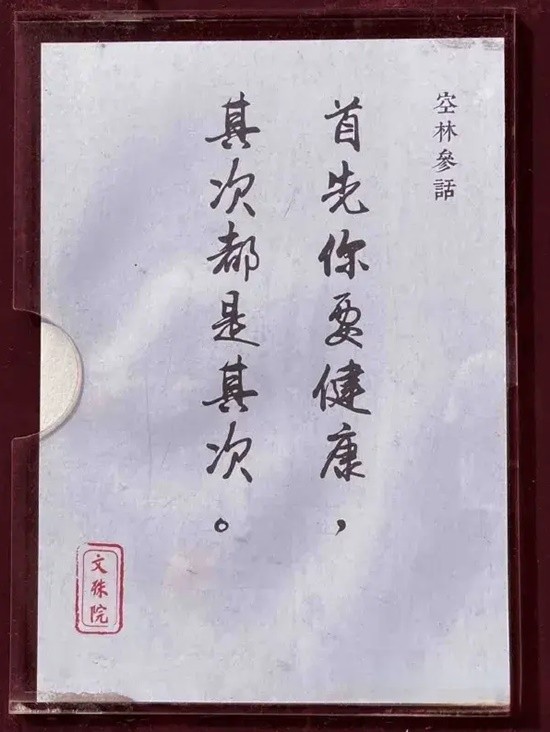 空林參話
首先你要健康，
其次都是其次。
文殊院